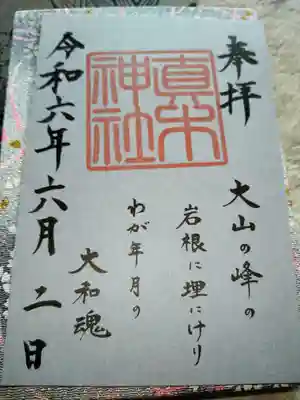 奉拝
真木神社
大山の峰の
岩根に埋にけり
わが年月の
大和魂
令和六年六月二日